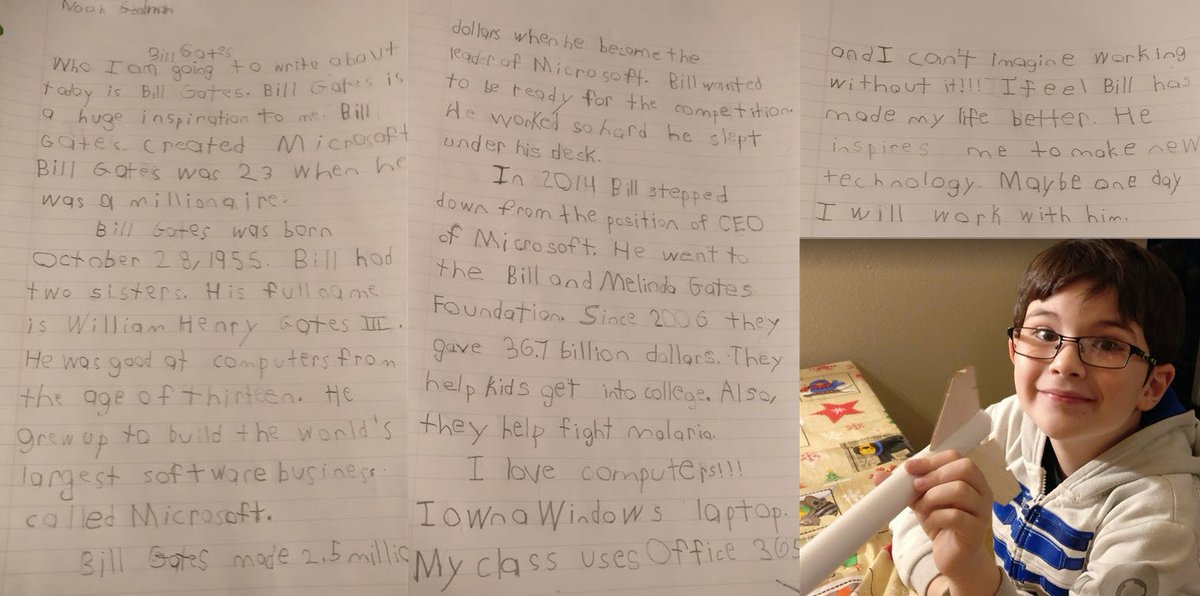 Noah Goodman
Bill Gates
Who I am going to write about
today is Bill Gates. Bill Gates is
a huge inspiration to me. Bill
Gates created Microsoft
Bill Gates was 23 when he
was a millionaire.
Bill Gates was born
October 28, 1955. Bill had
two sisters. His full name
is William Henry Gates III.
He was good at computers from
the age of thirteen. He
grew up to build the world's
largest software business
called Microsoft.
Bill Gates made 2.5 millio
dollars when he become the
leader of Microsoft. Bill wanted
to be ready for the competition.
He worked so hard he slept
under his desk.
In 2014 Bill stepped
down from the position of CEO
of Microsoft. He went to
the Bill and Melinda Gates
Foundation. Since 2006 they
gave 36.7 billion dollars. They
help kids get into college. Also,
they help fight malaria.
I love computers!!!
I own a Windows laptop.
My class uses Office 365
and I can't imagine working
without it!!! I feel Bill has
made my life better. He
inspires me to make new
technology. Maybe one day
I will work with him.